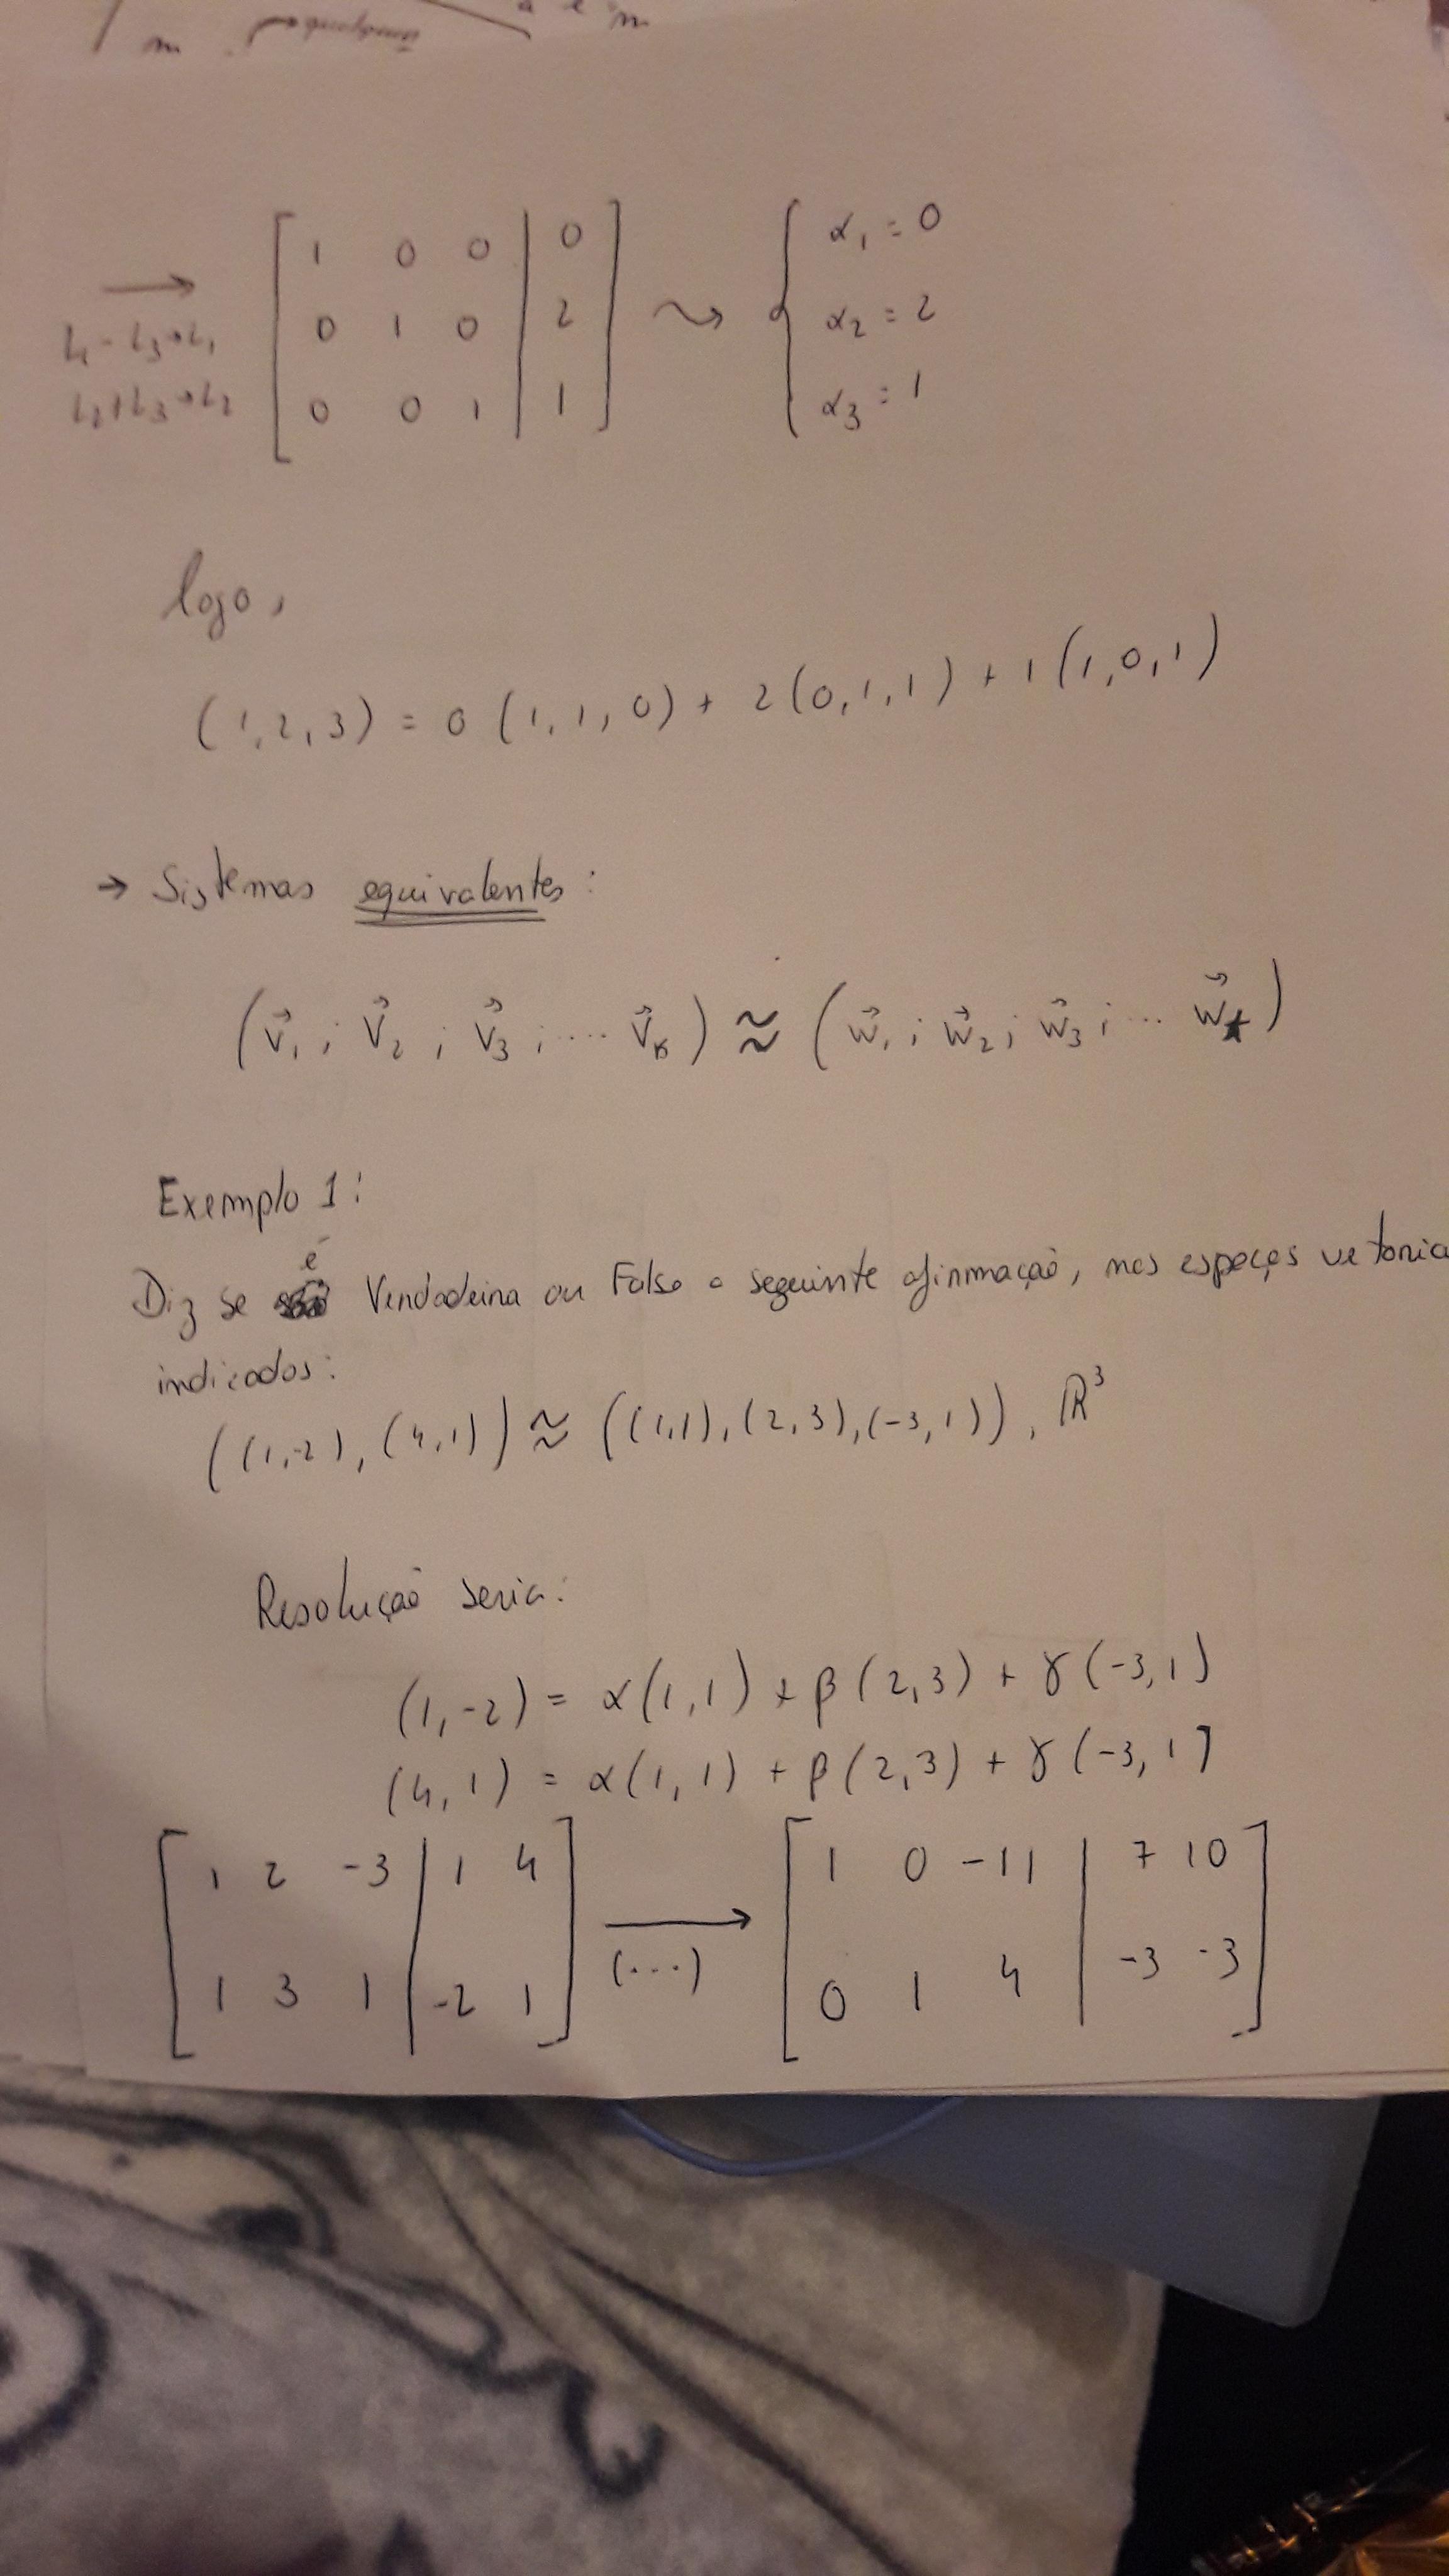 L₁ - L₃ → L₁
L₂ + L₃ → L₂
[ 1 0 0 | 0 ] ⤳ { α₁ = 0
[ 0 1 0 | 2 ] { α₂ = 2
[ 0 0 1 | 1 ] { α₃ = 1
logo,
(1,2,3) = 0 (1,1,0) + 2 (0,1,1) + 1 (1,0,1)
→ Sistemas equivalentes:
(v⃗₁ ; v⃗₂ ; v⃗₃ ; ... v⃗ₖ) ≈ (w⃗₁ ; w⃗₂ ; w⃗₃ ; ... w⃗)
Exemplo 1:
Diz se é Verdadeira ou Falso a seguinte afirmação, nos espaços vetoria
indicados:
((1,-2), (4,1)) ≈ ((1,1), (2,3), (-3,1)), ℝ³
Resolução seria:
(1,-2) = α(1,1) + β(2,3) + γ(-3,1)
(4,1) = α(1,1) + β(2,3) + γ(-3,1)
[ 1 2 -3 | 1 4 ] → [ 1 0 -11 | 7 10 ]
[ 1 3 1 | -2 1 ] (...) [ 0 1 4 | -3 -3 ]